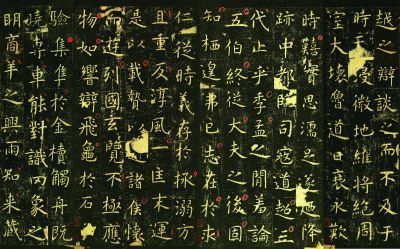 越之辯談之而不及于
時天微地維將絕周
室大壞魯道日衰永歎
時艱實思濡足遂迺降
跡中都司寇道超三
代止乎季孟之閒羞論
五伯終從大夫之後固
知栖遑弗已志在於求
仁從時義存於拯溺方
且重反淳風一匡末運
是以載贄以諸侯懷
而遊列國玄覽不極應
物如響辯飛龜於石
驗集隼於金櫝觸舟既
曉專車能對識罔象之
明商羊之興雨知來藏